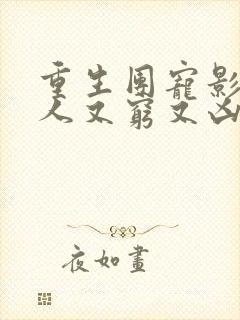 重生團寵影
人又窮又凶
夜如晝